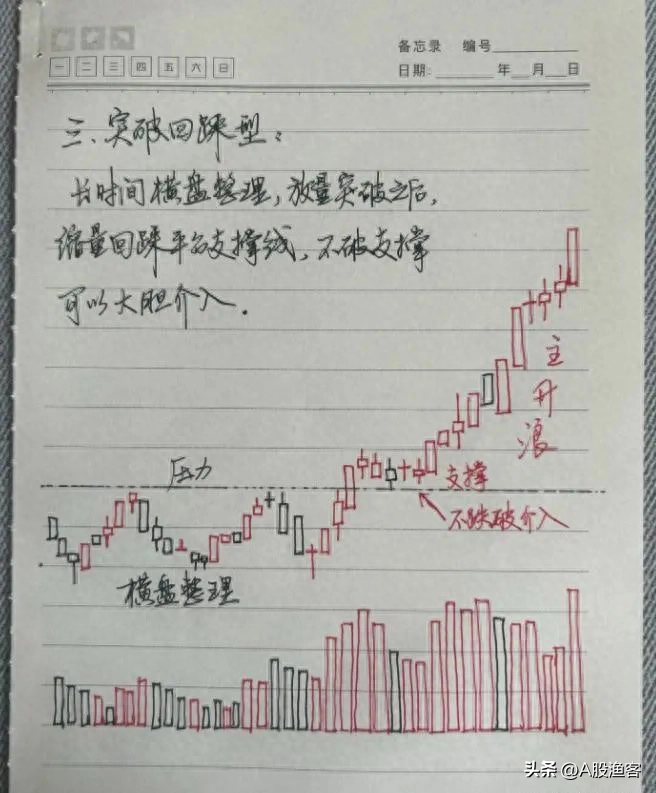 备忘录 编号
一 二 三 四 五 六 日
日期: 年 月 日
三、突破回踩型：
长时间横盘整理，放量突破之后，
缩量回踩平台支撑线，不破支撑
可以大胆介入．
主升浪
压力
支撑
不跌破介入
横盘整理
头条 @A股渔客